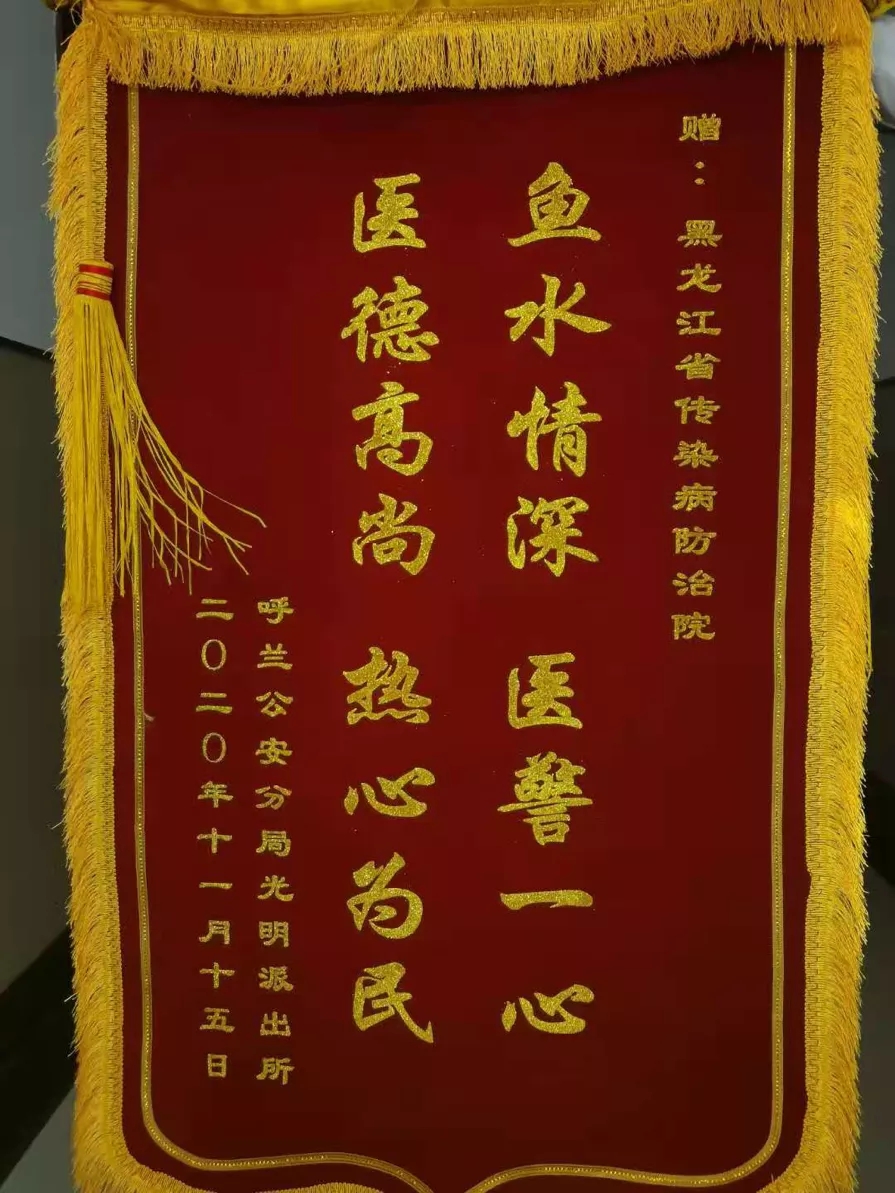 赠：黑龙江省传染病防治院
鱼水情深 医警一心
医德高尚 热心为民
呼兰公安分局光明派出所
二〇二〇年十一月十五日